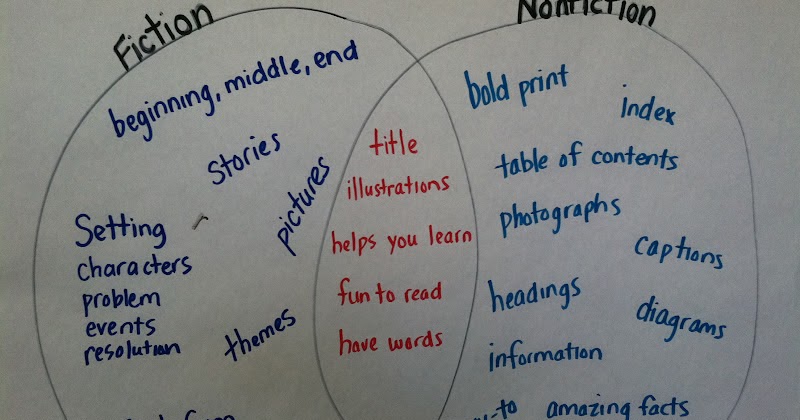 Fiction
beginning, middle, end
Stories
pictures
Setting
characters
problem
events
resolution
themes
title
illustrations
helps you learn
fun to read
have words
Nonfiction
bold print
index
table of contents
photographs
captions
headings
diagrams
information
amazing facts